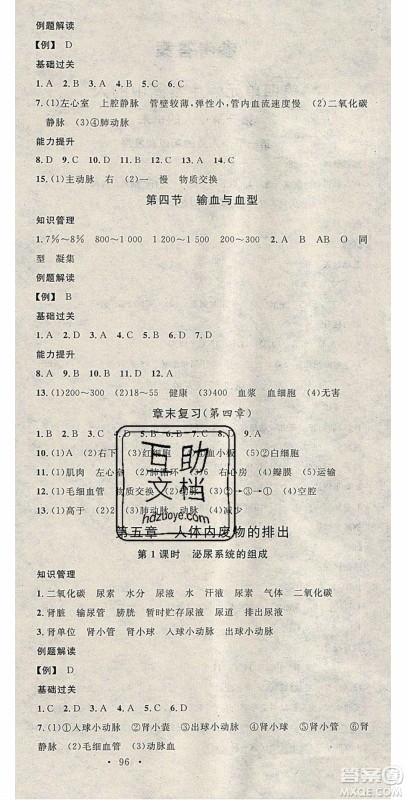 例题解读
【例】D
基础过关
1. A 2. B 3. B 4. D 5. A 6. A
7. (1)左心室 上腔静脉 管壁较薄,弹性小,管内血流速度慢 (2)二氧化碳
静脉 (3)④肺动脉
能力提升
8. D 9. C 10. D 11. C 12. D 13. D 14. B
15. (1)主动脉 右 (2)一 慢 物质交换
第四节 输血与血型
知识管理
1. 7%～8% 800～1 000 1 200～1 500 2. A B AB O 同
型 凝集
例题解读
【例】B
基础过关
1. C 2. D 3. B 4. D 5.
能力提升
8. D 9. B 10. B 11. C 12.
13. (1)200～300 (2)18～55 健康 (3)400 血浆 血细胞 (4)无害
章末复习(第四章)
1. B 2. D 3. C 4. B 5. C 6. D 7. C 8. B 9. D
10. (1)A (2)右下
11. (1)肌肉 左心室 (2)肺循环 (3)右心房 (4)瓣膜 (5)运输
12. (1)毛细血管 物质交换 (2)③→①→② (3)红 (4)空腔
13. (1)高于 (4)尿素
第五章 人体内废物的排出
第1课时 泌尿系统的组成
知识管理
1. 二氧化碳 尿素 水分 尿液 水 汗液 尿素 二氧化碳
2. 肾脏 输尿管 膀胱 暂时贮存尿液 尿道 排出尿液
3. 肾单位 肾小球 肾小囊 肾小管 入球小动脉 肾小球 出球小动脉
例题解读
【例】D
基础过关
1. C 2. D 3. A 4. C 5. A 6. D
7. (1)①入球小动脉 ②肾小囊 ③肾小球 ④出球小动脉 ⑤肾小管
(2)毛细血管 (3)动脉血
· 96 ·
互助
文档
hdzuoye.com
答案圈
MXQE.COM